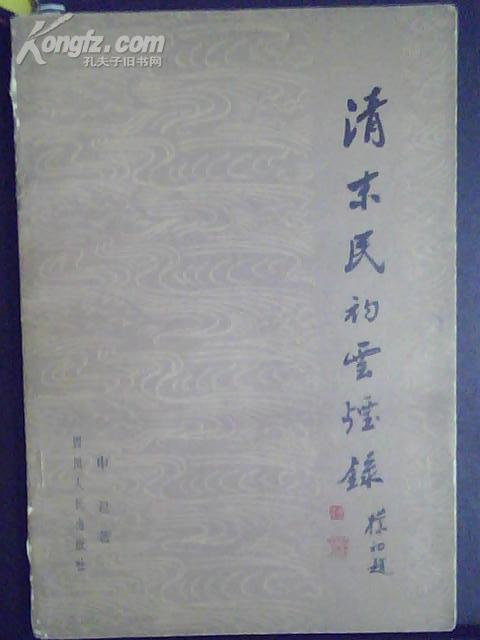 Kongfz.com
孔夫子旧书网
清末民初雲煙錄
樸初題
申君著
四川人民出版社